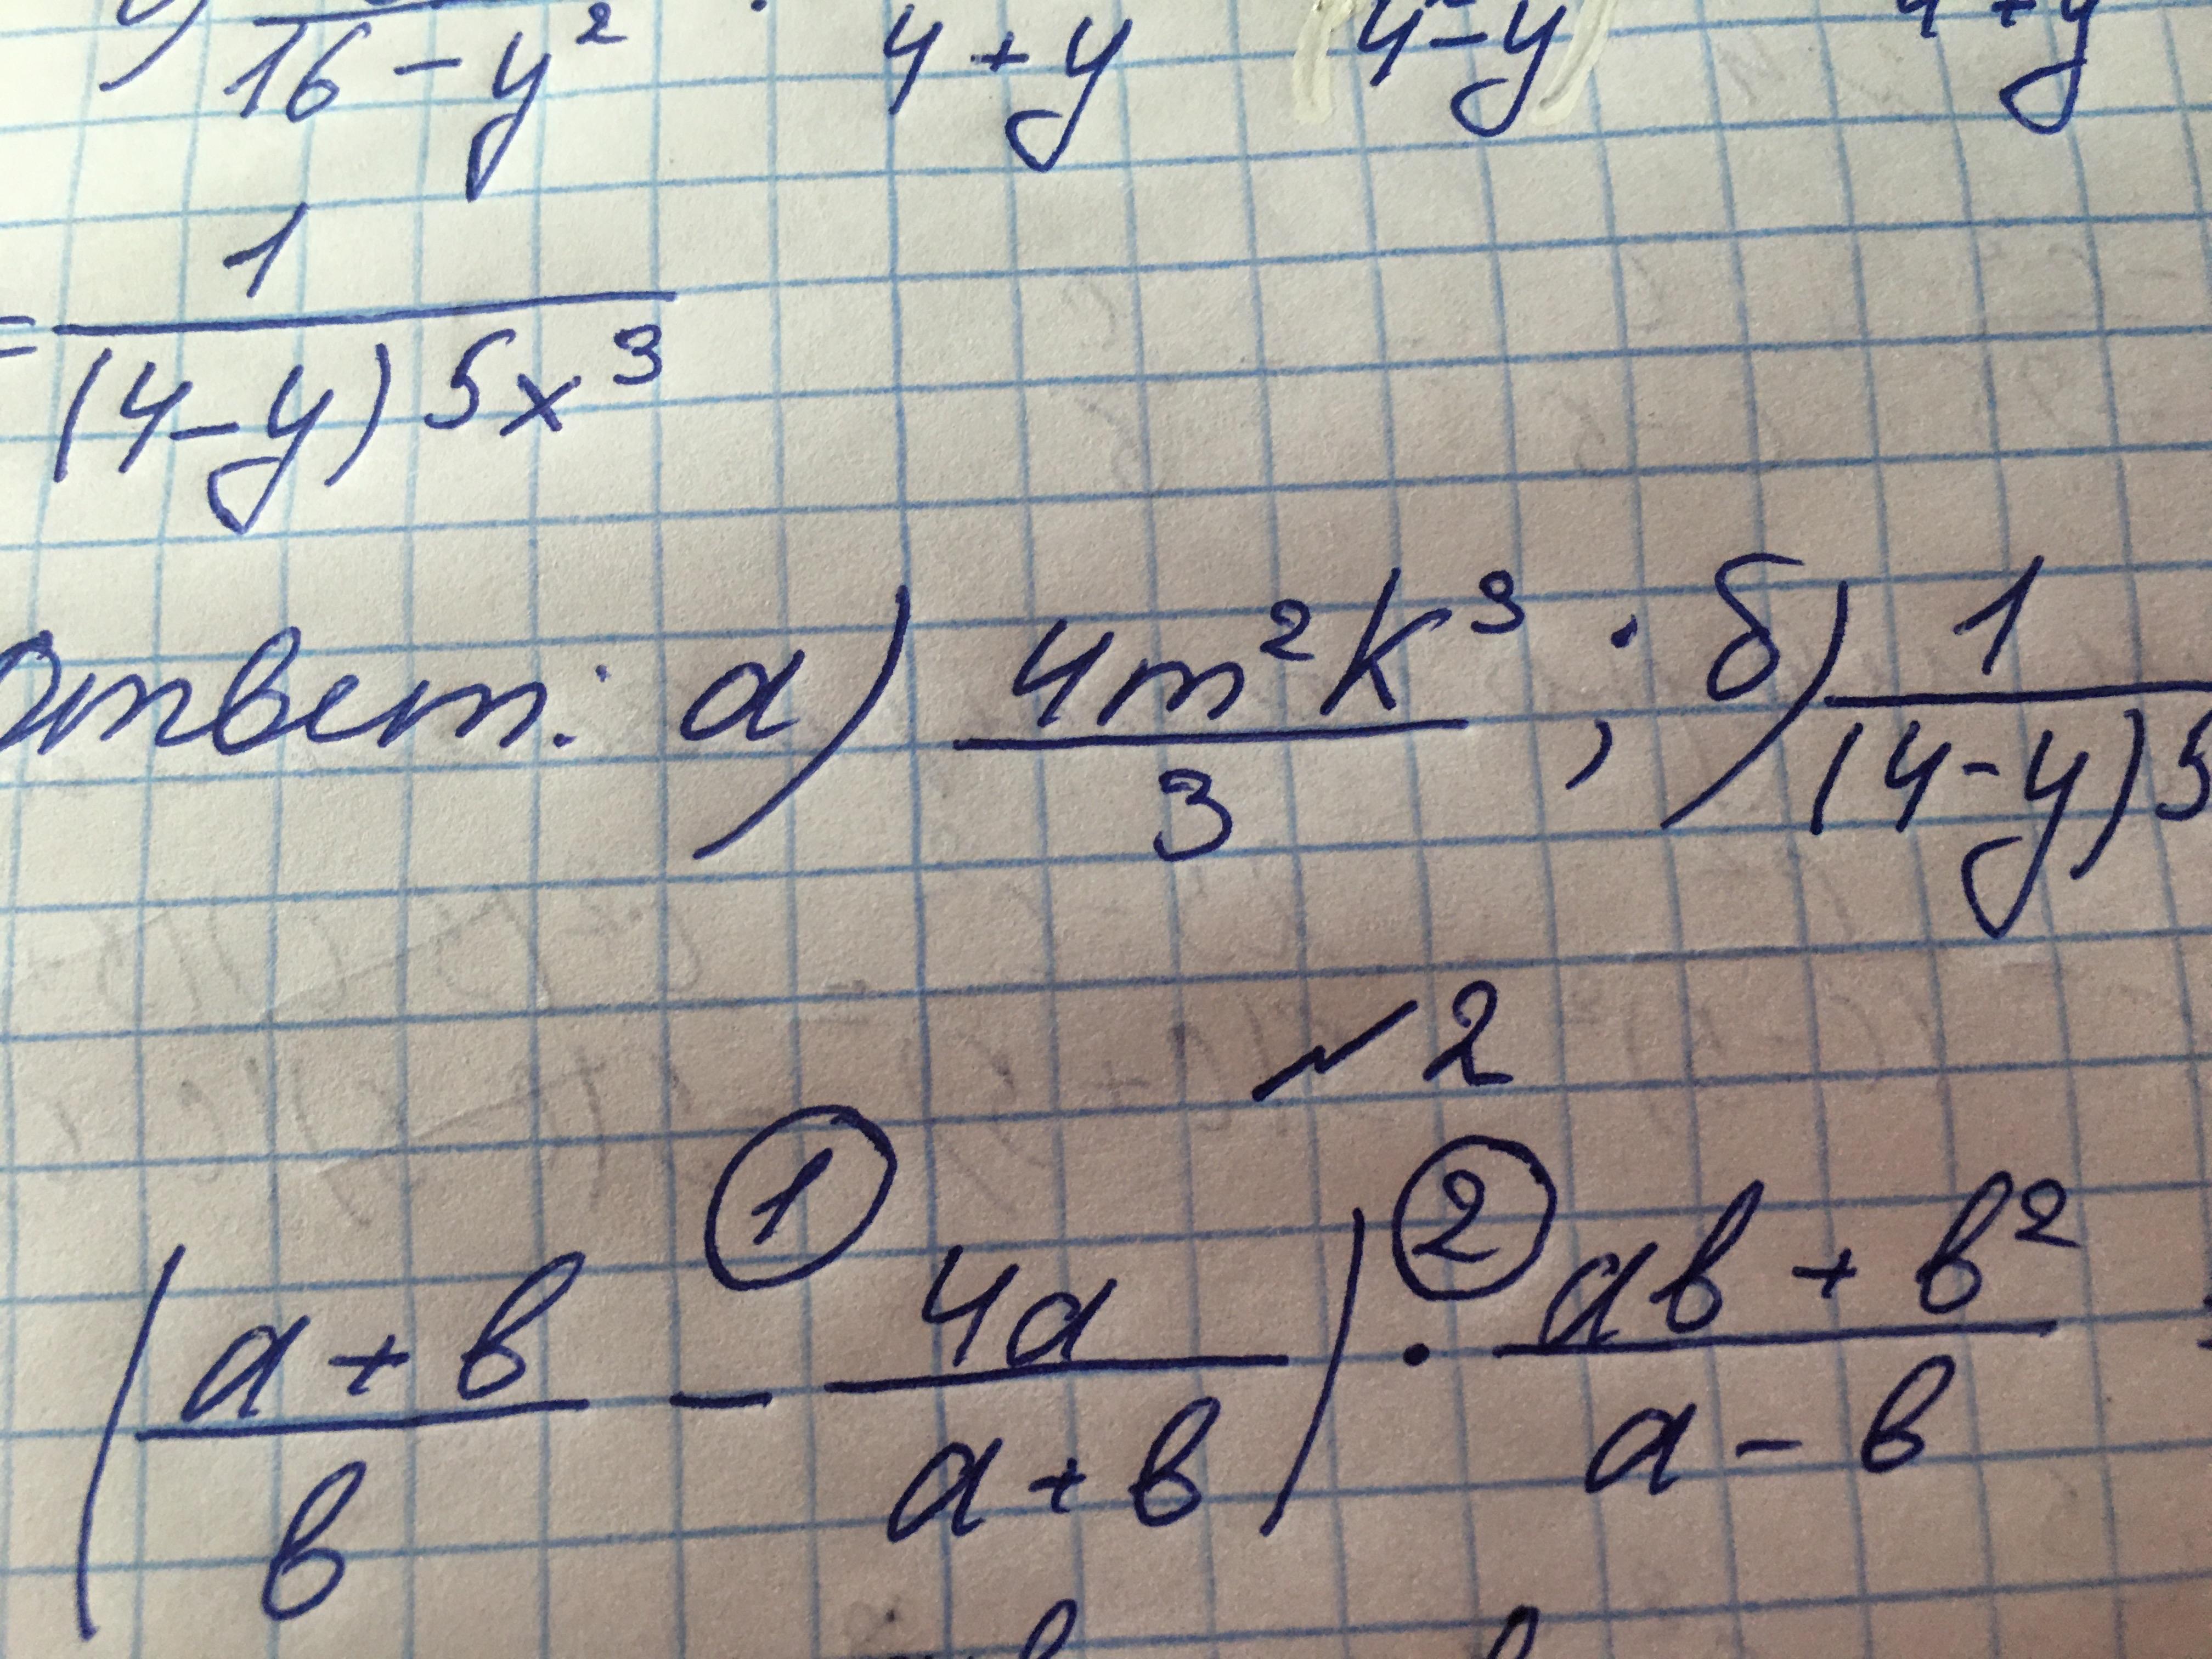 16 - y² : 4 + y (4 - y) 4 + y
= 1 / (4 - y) 5x³
Ответ: а) 4m²k³ / 3 ; б) 1 / (4 - y) 5
№2
① ②
( (a + b) / b - 4a / (a + b) ) · (ab + b²) / (a - b)